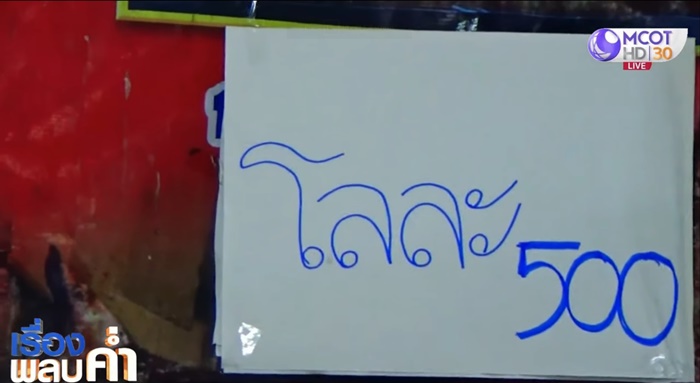 MCOT
HD 30
LIVE
โลละ 500
เรื่อง
พลบค่ำ